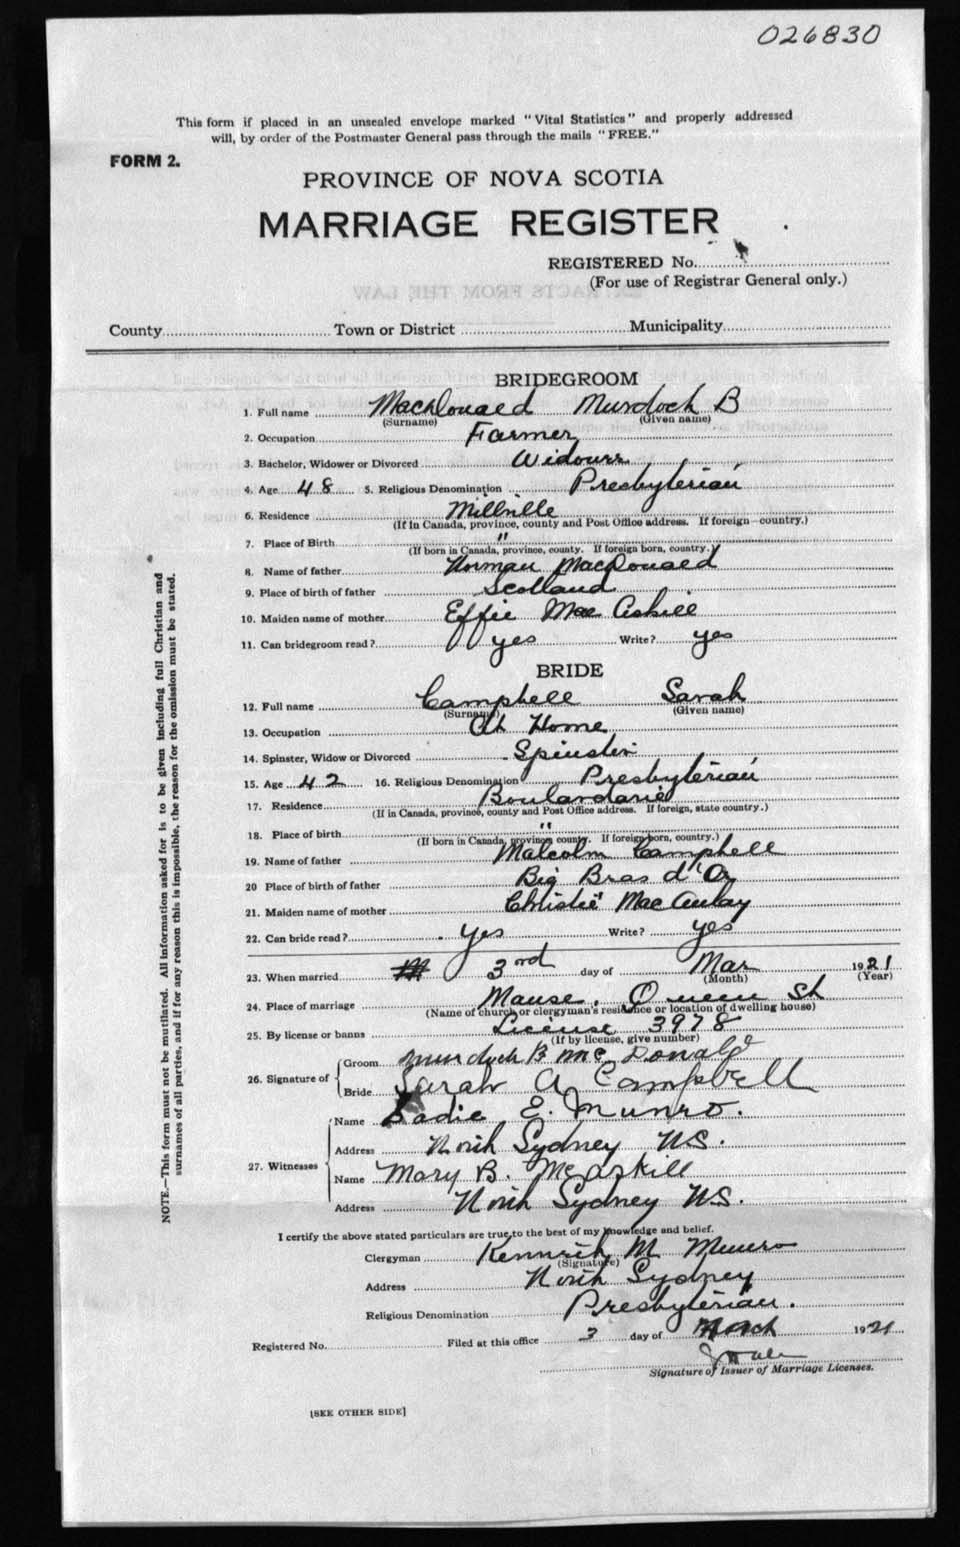 026830
This form if placed in an unsealed envelope marked "Vital Statistics" and properly addressed
will, by order of the Postmaster General pass through the mails "FREE."
FORM 2.
PROVINCE OF NOVA SCOTIA
MARRIAGE REGISTER
REGISTERED No.
(For use of Registrar General only.)
County Town or District Municipality
BRIDEGROOM
1. Full name MacDonald Murdoch B
(Surname) (Given name)
2. Occupation Farmer
3. Bachelor, Widower or Divorced Widower
4. Age 48 5. Religious Denomination Presbyterian
6. Residence Millville
(If in Canada, province, county and Post Office address. If foreign—country.)
7. Place of Birth "
(If born in Canada, province, county. If foreign born, country.)
8. Name of father Norman MacDonald
9. Place of birth of father Scotland
10. Maiden name of mother Effie Mac Askill
11. Can bridegroom read? yes Write? yes
BRIDE
12. Full name Campbell Sarah
(Surname) (Given name)
13. Occupation At Home
14. Spinster, Widow or Divorced Spinster
15. Age 42 16. Religious Denomination Presbyterian
17. Residence Boulardarie
(If in Canada, province, county and Post Office address. If foreign, state country.)
18. Place of birth "
(If born in Canada, province county. If foreign born, country.)
19. Name of father Malcolm Campbell
20 Place of birth of father Big Bras d'Or
21. Maiden name of mother Christie MacAulay
22. Can bride read? yes Write? yes
23. When married 3rd day of Mar 1921
(Month) (Year)
24. Place of marriage Manse, Queen St
(Name of church or clergyman's residence or location of dwelling house)
25. By license or banns License 3978
(If by license, give number)
26. Signature of Groom Murdoch B McDonald
Bride Sarah A Campbell
27. Witnesses Name Sadie E. Munro.
Address North Sydney N.S.
Name Mary B. McAskill
Address North Sydney N.S.
I certify the above stated particulars are true to the best of my knowledge and belief.
Clergyman Kenneth M Munro
(Signature)
Address North Sydney
Religious Denomination Presbyterian.
Registered No. Filed at this office 3 day of March 1921
Signature of Issuer of Marriage Licenses.
[SEE OTHER SIDE]
NOTE.—This form must not be mutilated. All information asked for is to be given including full Christian and
surnames of all parties, and if for any reason this is impossible, the reason for the omission must be stated.